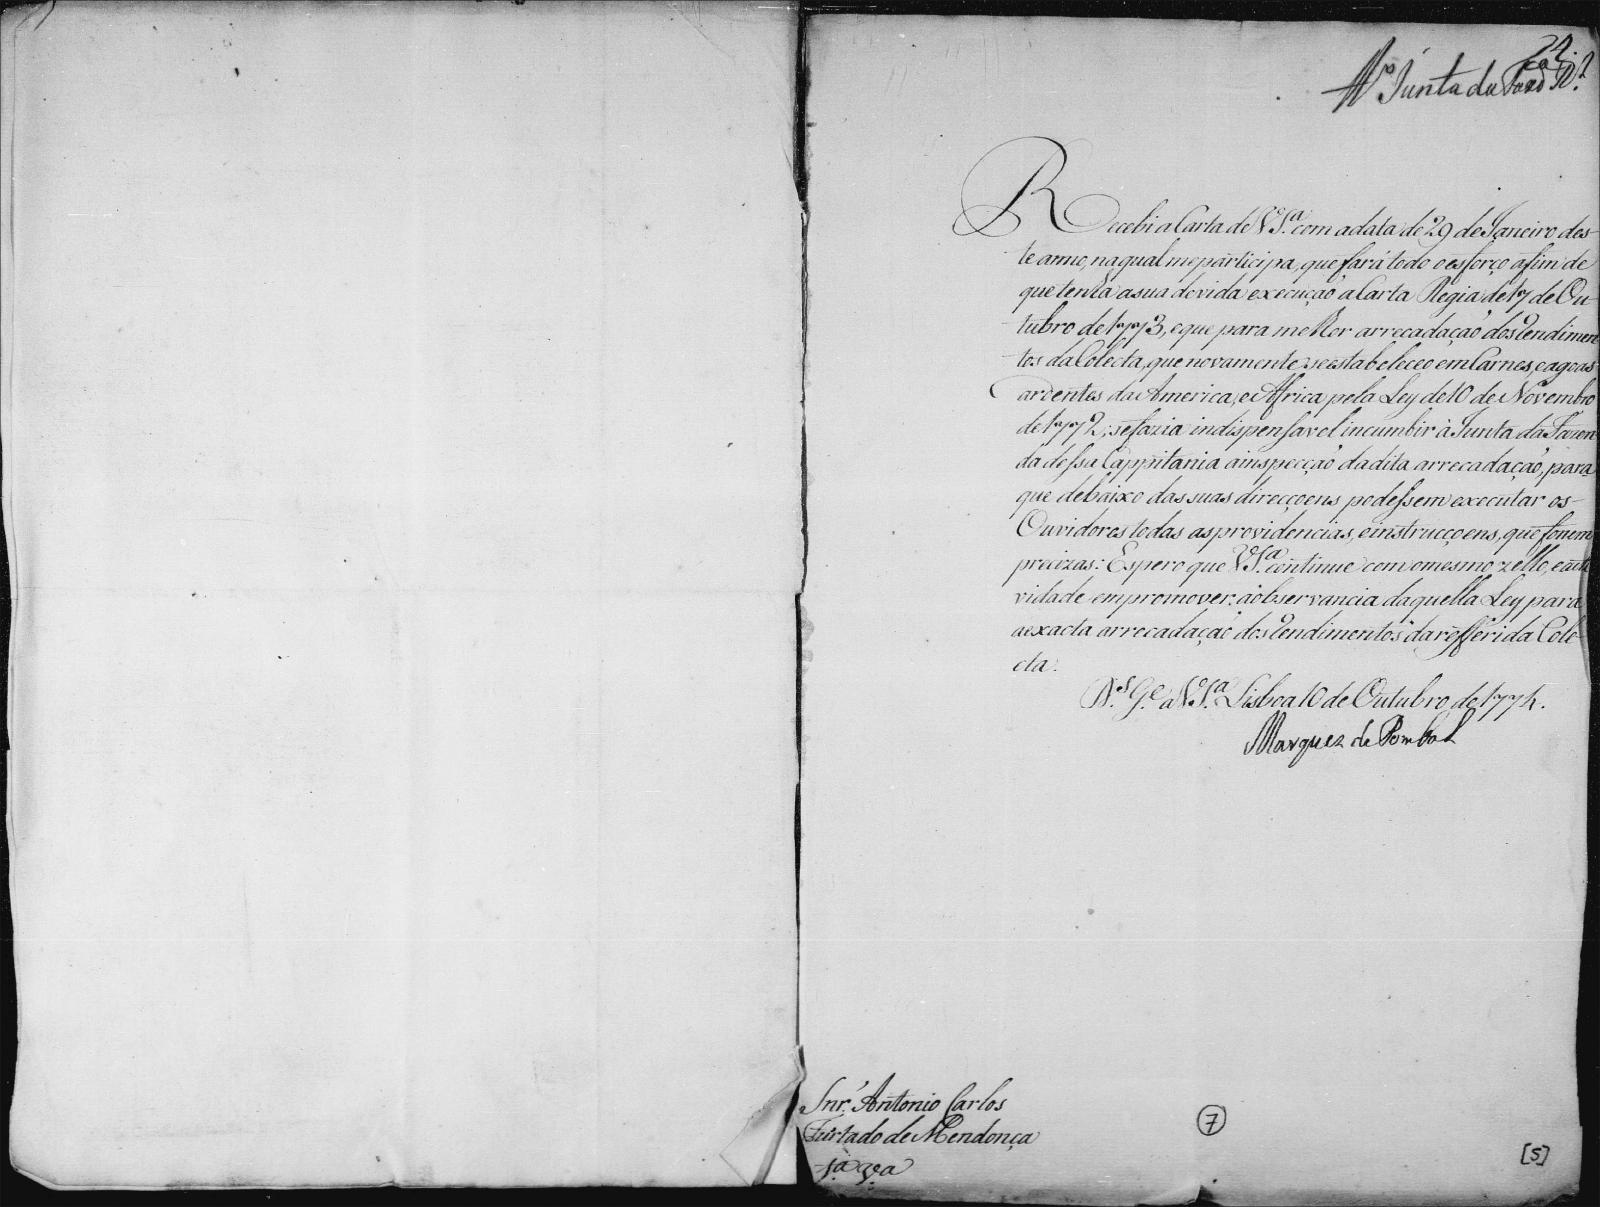 24
N.º Junta da Fazd.ª R.l
Recebi a Carta de V.S.ª com a data de 29 de Janeiro des-
te anno, na qual me participa, que fará todo o esforço a fim de
que tenha a sua devida execução a Carta Regia de 17 de Ou-
tubro de 1773, e que para melhor arrecadação dos Rendimen
tos da Colecta, que novamente se estabeleceo em Carnes, e agoas
ardentes da America, e Africa pela Ley de 10 de Novembro
de 1772, se fazia indispensavel incumbir à Junta da Fazen
da dessa Cappitania a inspecção da dita arrecadação, para
que debaixo das suas direcçoens podessem executar os
Ouvidores todas as providencias, e instrucçoens, que forem
precizas: Espero que V.S.ª continue com o mesmo zello, e acti
vidade em promover a observancia daquella Ley para
a exacta arrecadação dos Rendimentos da refferida Cole-
cta.
D.s G.e a V.S.ª Lisboa 10 de Outubro de 1774.
Marquez de Pombal
Snr. Antonio Carlos
Furtado de Mendonça
7
[5]